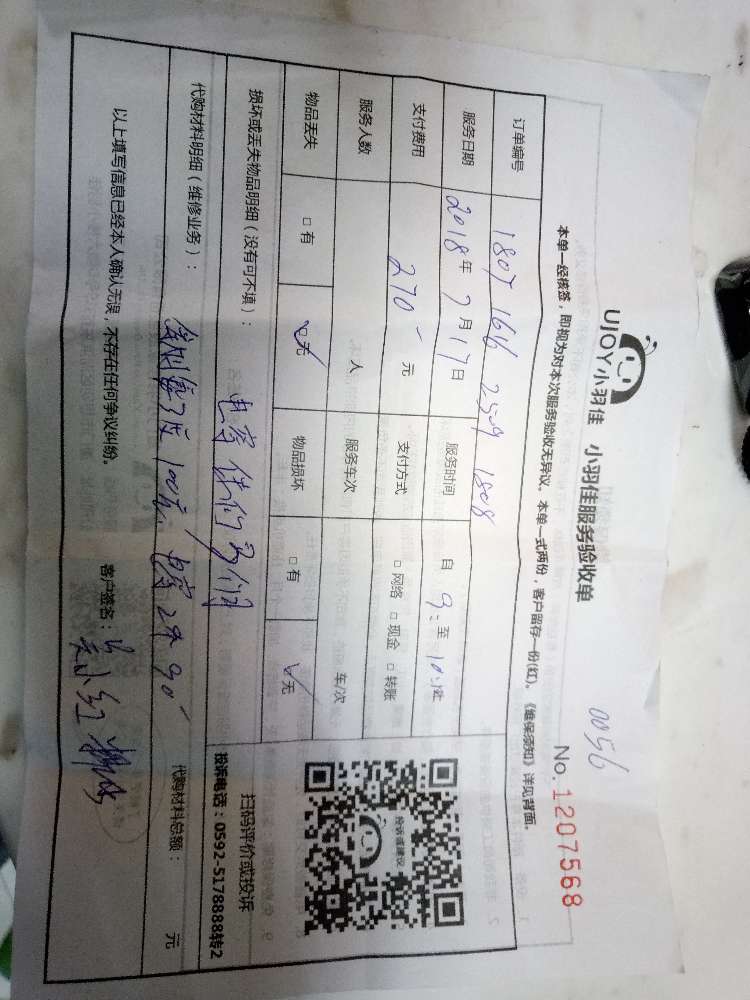 0056
UJOY小羽佳 小羽佳服务验收单
No.1207568
本单一经核签，即视为对本次服务验收无异议。本单一式两份，客户留存一份(红)。《维保须知》详见背面。
订单编号 1807 166 2509 1808
服务日期 2018年7月17日 服务时间 自 9: 至 10:
支付费用 270 元 支付方式 □网络 □现金 □转账
服务人数 人 服务车次 车/次
物品丢失 □有 ☑无 物品损坏 □有 ☑无
损坏或丢失物品明细（没有可不填）：
代购材料明细（维修业务）： 100元 90 代购材料总额： 元
以上填写信息已经本人确认无误，不存在任何争议纠纷。 客户签名：
投诉或建议
扫码评价或投诉
投诉电话：0592-5178888转2